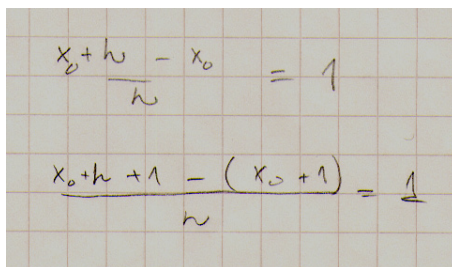 x₀+h - x₀
h
= 1
x₀+h+1 - (x₀+1)
h
= 1